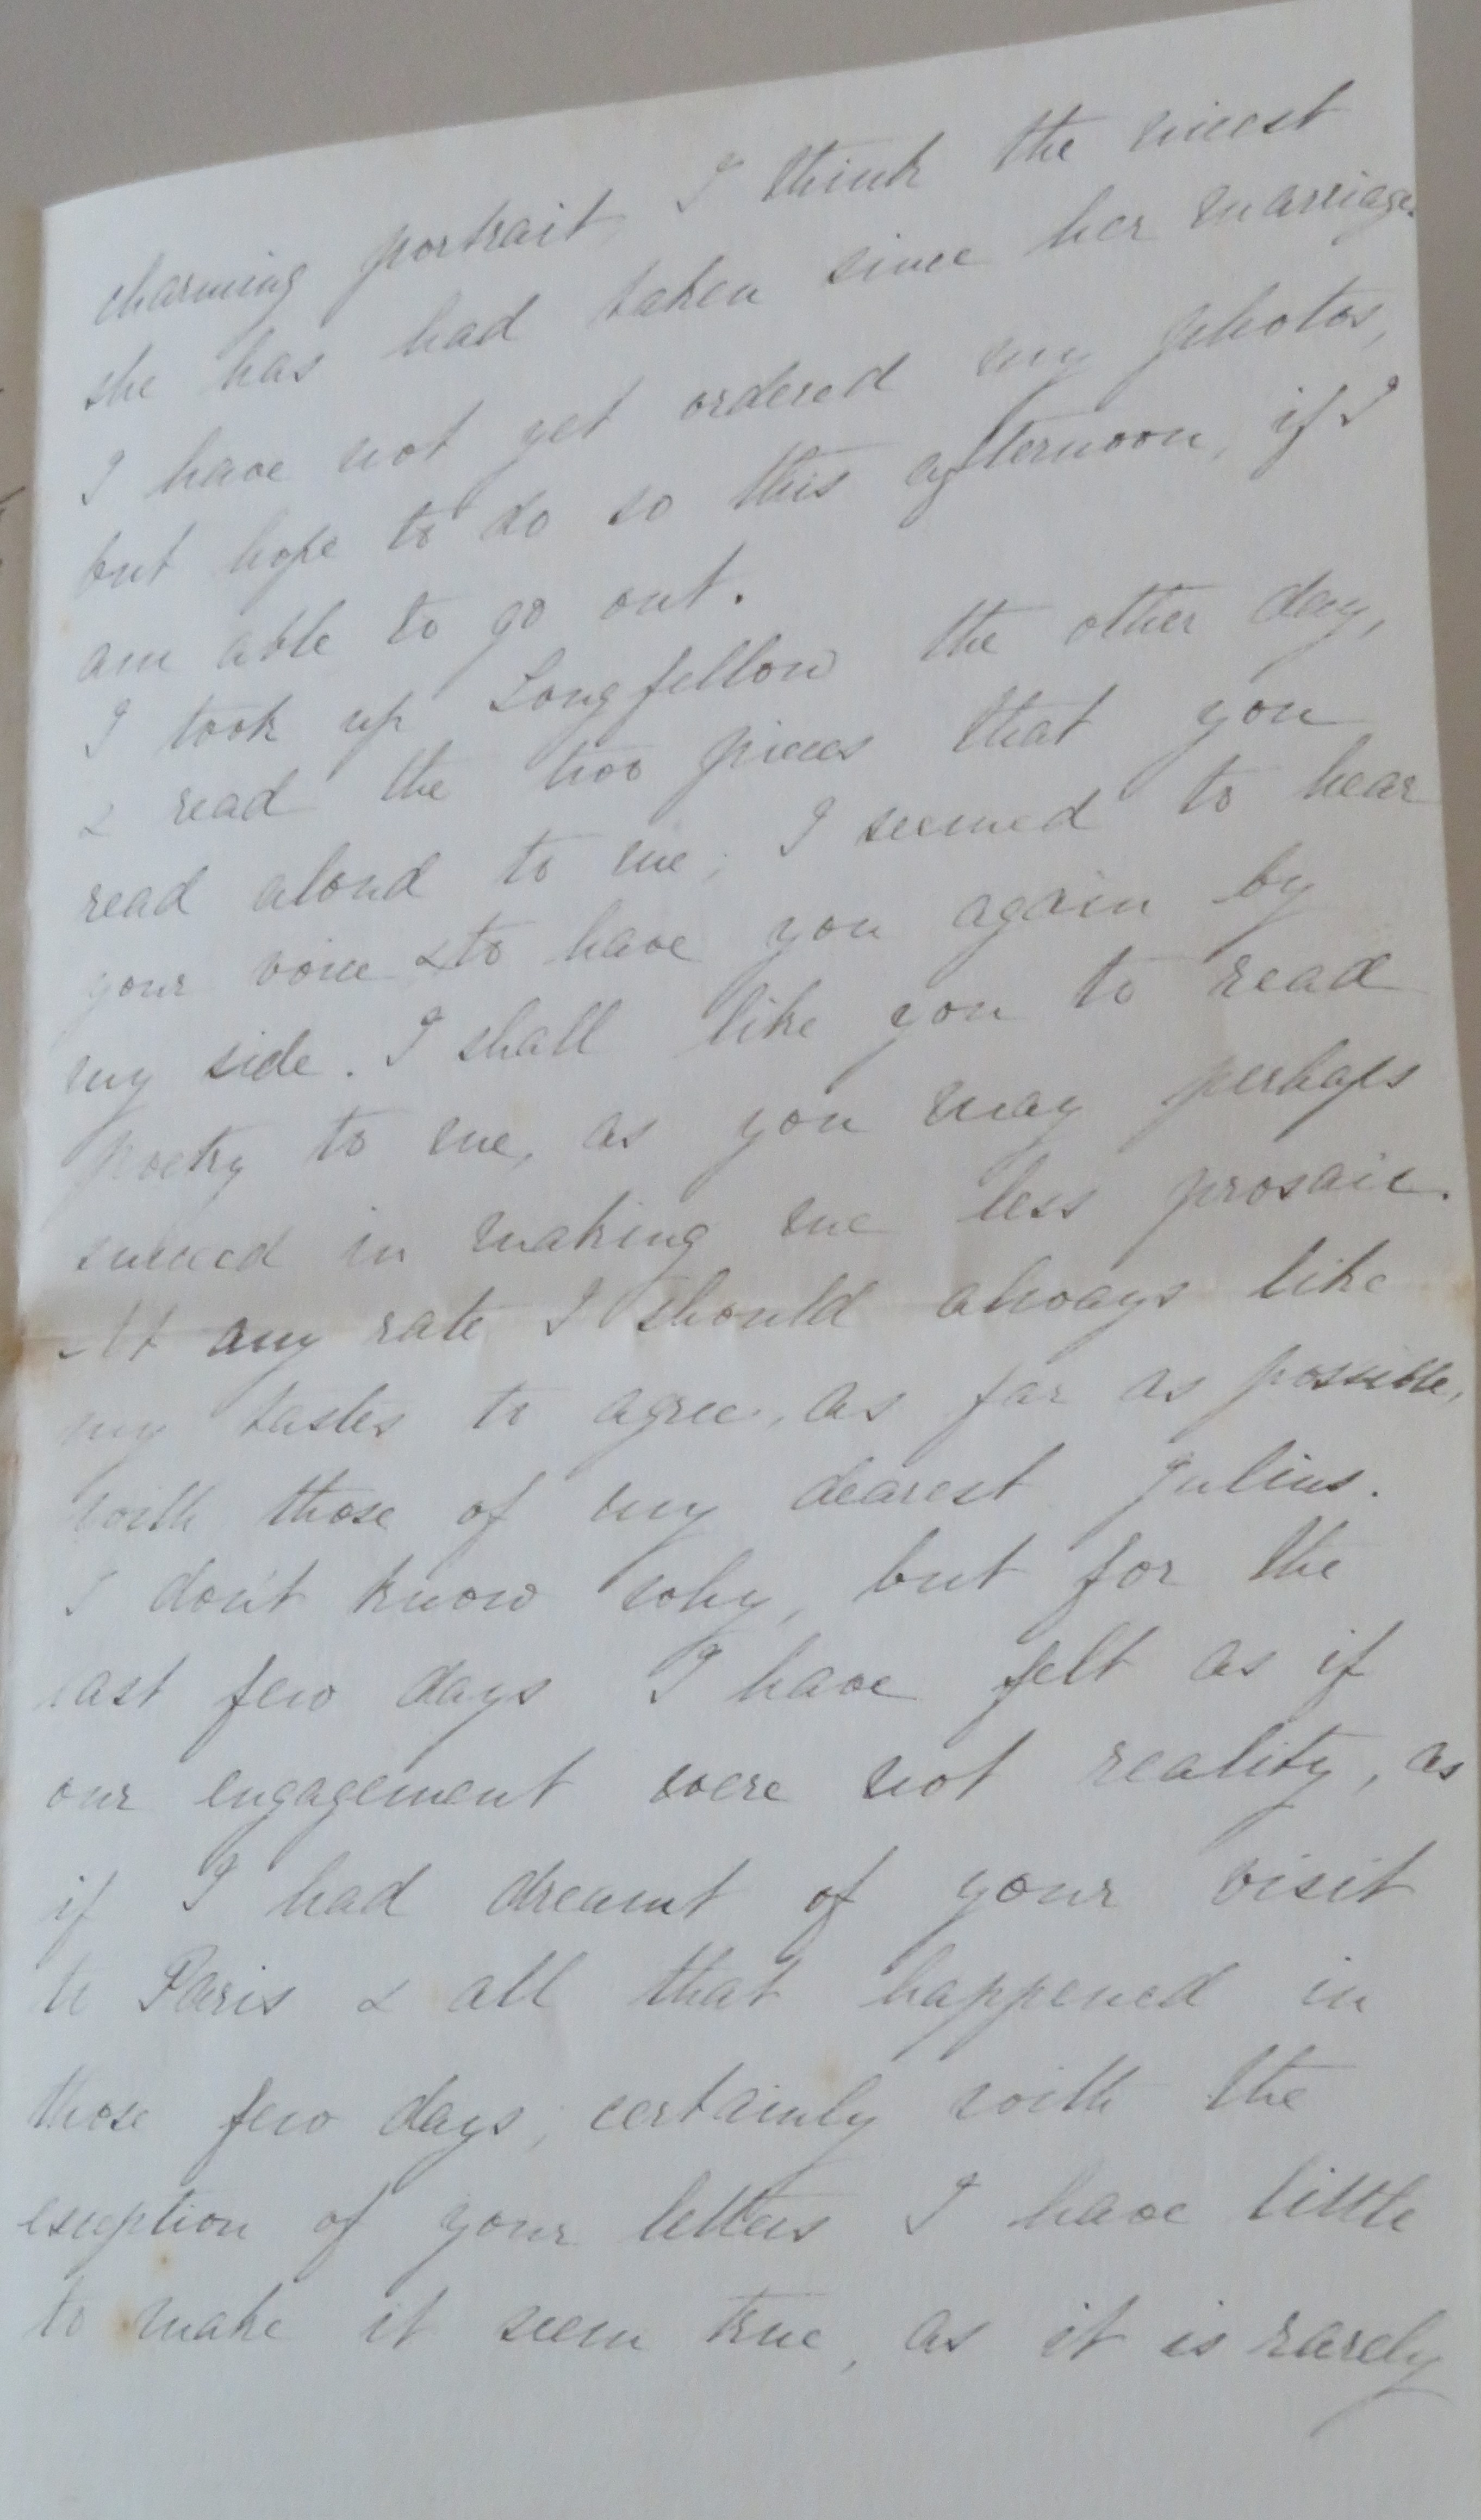 charming portrait, I think the nicest
she has had taken since her marriage.
I have not yet ordered my photos,
but hope to do so this afternoon, if I
am able to go out.
I took up Longfellow the other day,
& read the two pieces that you
read aloud to me; I seemed to hear
your voice & to have you again by
my side. I shall like you to read
poetry to me, as you may perhaps
succeed in making me less prosaic.
At any rate I should always like
my tastes to agree, as far as possible,
with those of my dearest Julius.
I don't know why, but for the
last few days I have felt as if
our engagement were not reality, as
if I had dreamt of your visit
to Paris & all that happened in
those few days, certainly with the
exception of your letters I have little
to make it seem true, as it is rarely